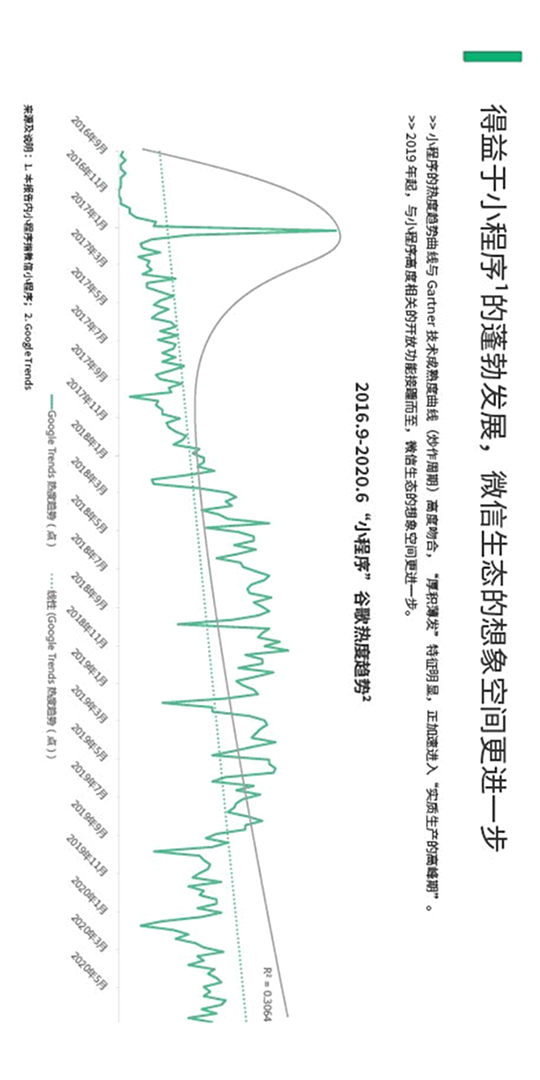 得益于小程序¹的蓬勃发展，微信生态的想象空间更进一步
>> 小程序的热度趋势曲线与 Gartner 技术成熟度曲线（炒作周期）高度吻合，“厚积薄发”特征明显，正加速进入“实质生产的高峰期”。
>> 2019 年起，与小程序高度相关的开放功能接踵而至，微信生态的想象空间更进一步。
2016.9-2020.6 “小程序” 谷歌热度趋势²
R² = 0.3064
2016年9月
2016年11月
2017年1月
2017年3月
2017年5月
2017年7月
2017年9月
2017年11月
2018年1月
2018年3月
2018年5月
2018年7月
2018年9月
2018年11月
2019年1月
2019年3月
2019年5月
2019年7月
2019年9月
2019年11月
2020年1月
2020年3月
2020年5月
Google Trends 热度趋势（点） 线性 (Google Trends 热度趋势（点）)
来源及说明：1. 本报告内小程序指微信小程序； 2. Google Trends